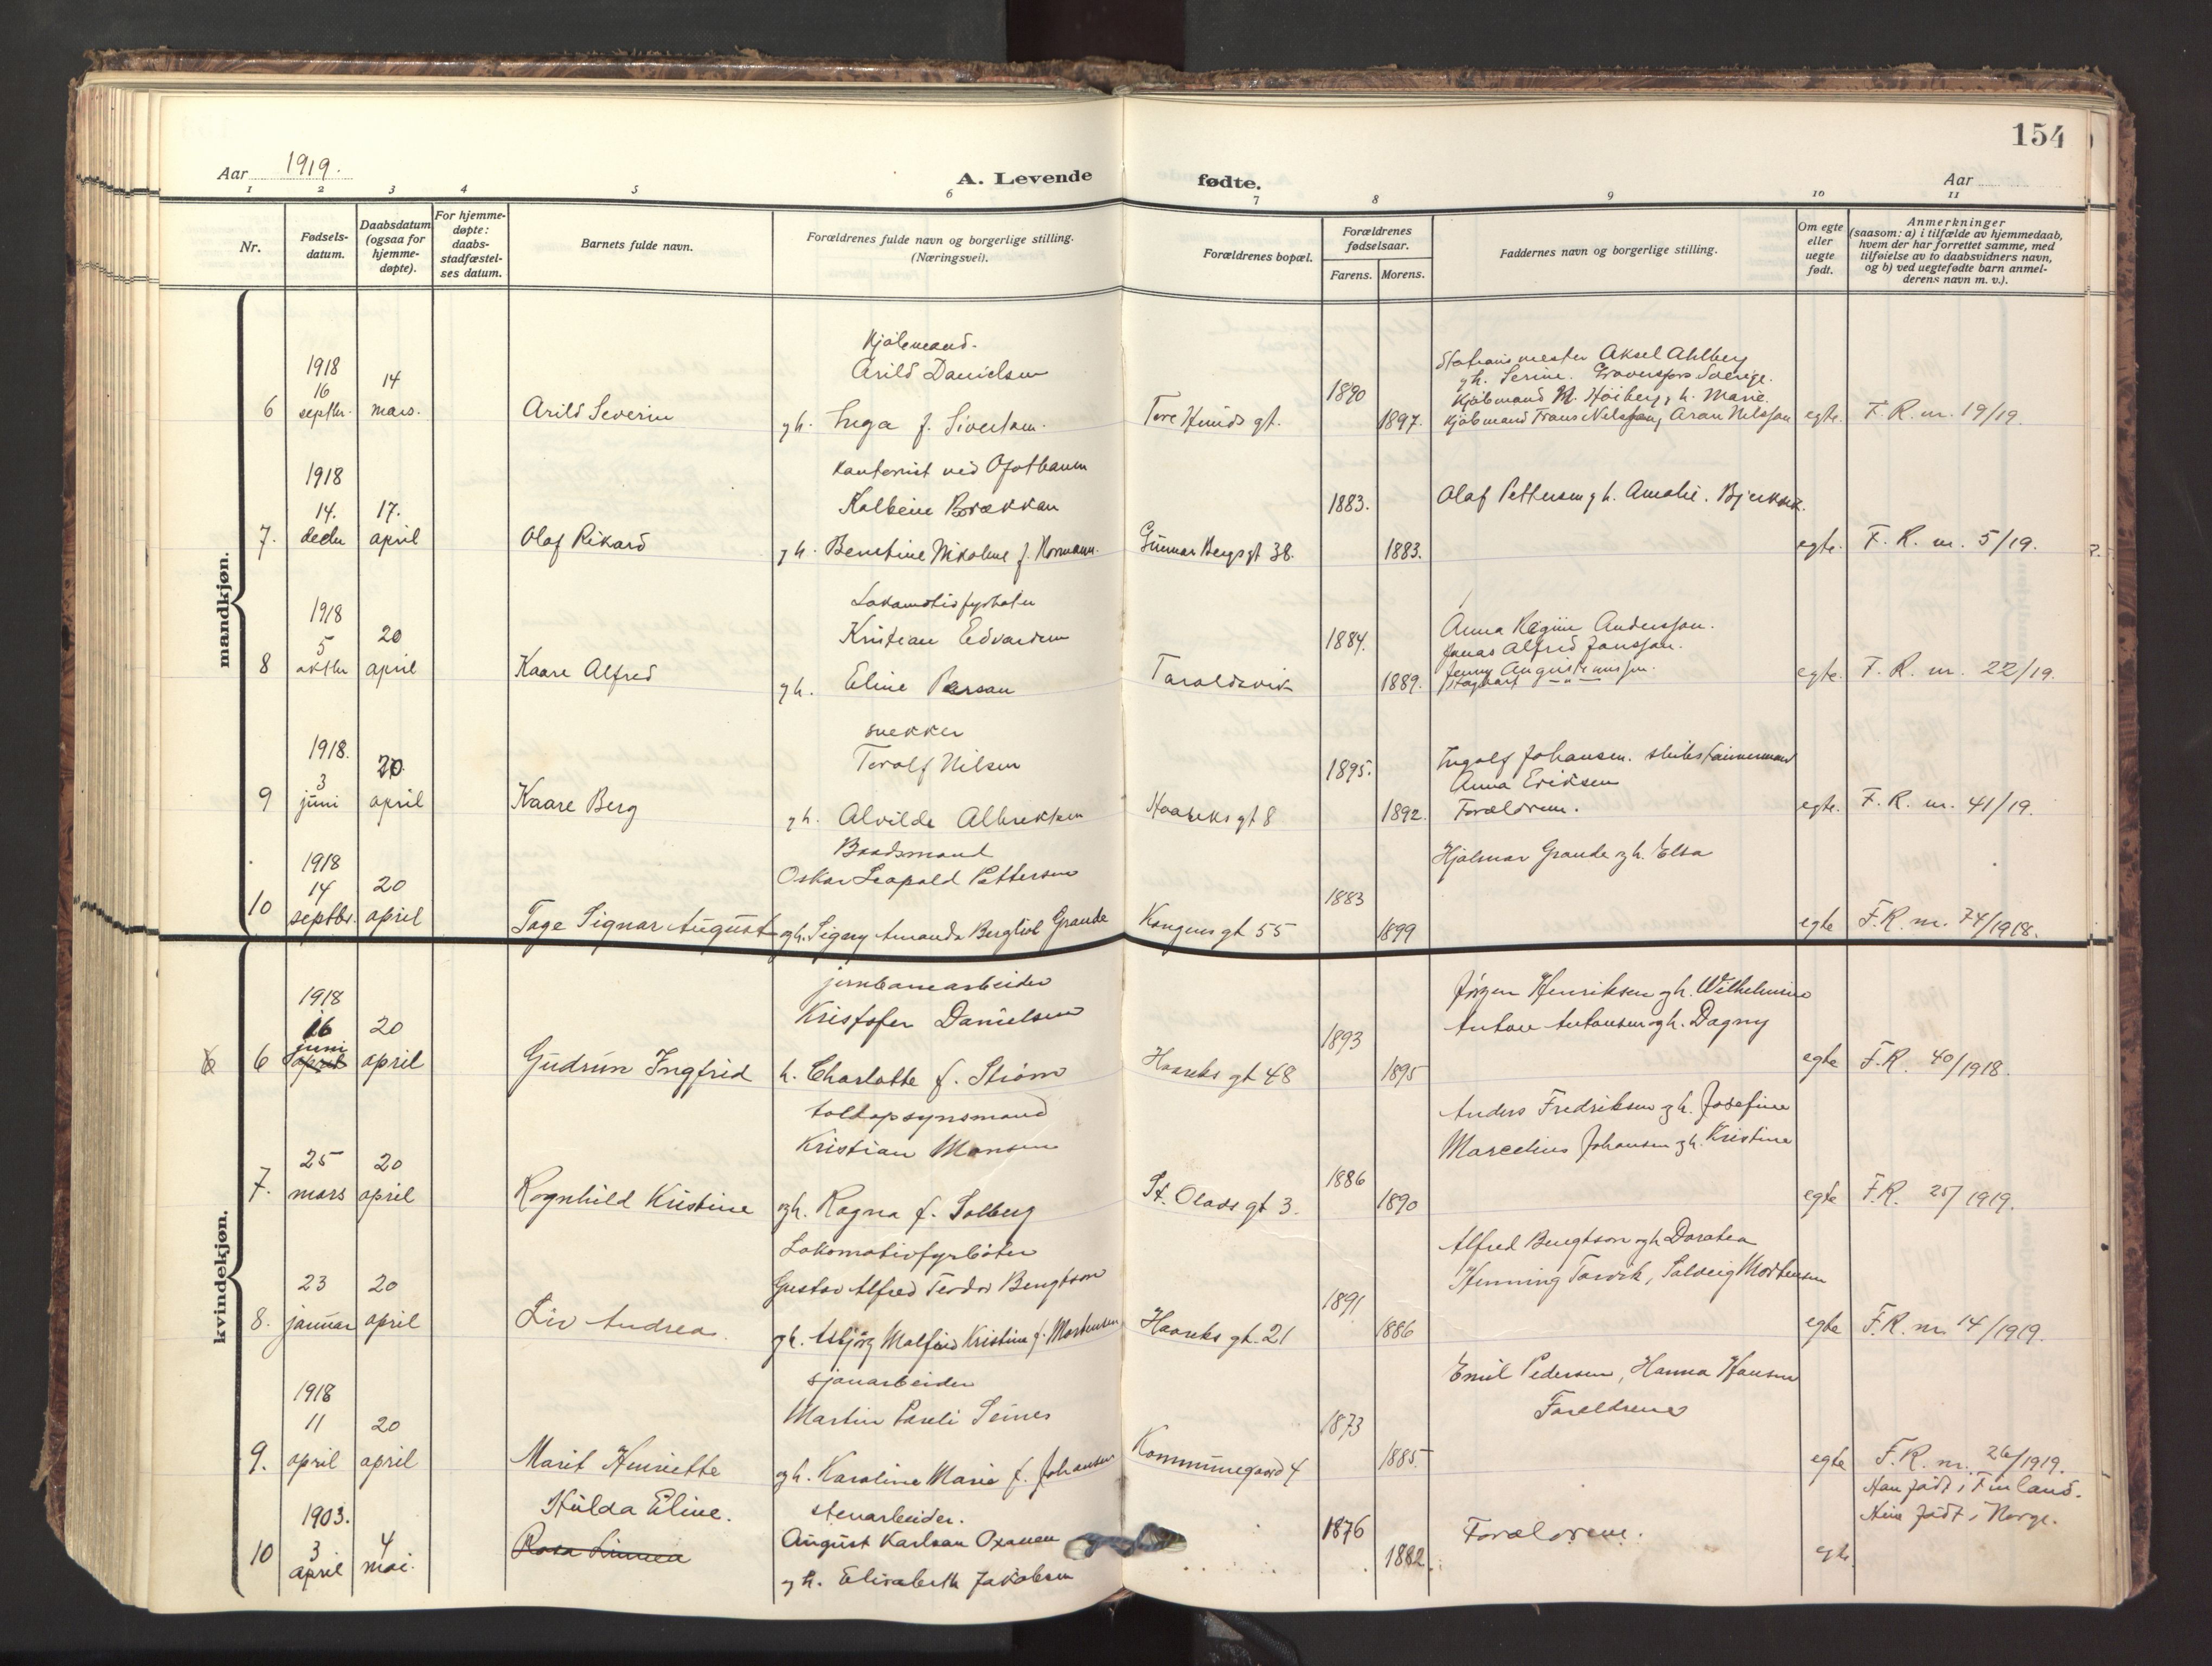 154
Aar 1919.
A. Levende fødte.
Aar
1 2 3 4 5 6 7 8 9 10 11
Nr.
Fødsels-
datum.
Daabsdatum
(ogsaa for
hjemme-
døpte).
For hjemme-
døpte:
daabs-
stadfæstel-
ses datum.
Barnets fulde navn.
Forældrenes fulde navn og borgerlige stilling.
(Næringsvei).
Forældrenes bopæl.
Forældrenes
fødselsaar.
Farens. Morens.
Faddernes navn og borgerlige stilling.
Om egte
eller
uegte
født.
Anmerkninger
(saasom: a) i tilfælde av hjemmedaab,
hvem der har forrettet samme, med
tilføielse av to daabsvidners navn,
og b) ved uegtefødte barn anmel-
derens navn m. v.).
mandkjøn.
6
1918
16
septbr.
14
mars.
Arild Severin
Kjøbmand.
Arild Danielsen
gh. Inga f. Sivertsen.
Tore Hunds gt.
1890
1897.
Stationsmester Aksel Ahlberg
gh. Serine. Graversfors Sverige.
Kjøbmand M. Høiberg, h. Marie.
Kjøbmand Frans Nilsson, Aran Nilsson
egte.
F. R. nr. 19/19.
7.
1918
14.
decbr
17.
april
Olaf Rikard
Kontorist ved Ofotbanen
Kolbein Brækkan
gh. Benstine Nikoline f. Normann.
Gunnar Bergsgt 38.
1883.
1883.
Olaf Pettersen gh. Amalie. Bjerkvik.
egte.
F. R. nr. 5/19.
8
1918
5
oktbr
20
april
Kaare Alfred
Lokomotivfyrbøter
Kristian Edvardsen
gh. Eline Persson
Taraldsvik
1884.
1889.
Anna Regine Andersson.
Jonas Alfred Jonsson.
Jenny Augustinussen.
egte.
F. R. nr. 22/19.
9
1918.
3
juni
20
april
Kaare Berg
snekker
Torolf Nilsen
gh. Alvilde Albrektsen
Haareks gt 8
1895.
1892.
Ingolf Johansen. skibstømmermand
Anna Eriksen
Forældrene.
egte.
F. R. nr. 41/19.
10
1918
14
septbr.
20
april
Tage Signar August
Baadsmand
Oskar Leopold Pettersen
gh. Signy Amanda Bergliot Grande
Kongens gt 55
1883
1899
Hjalmar Grande gh. Elsa
egte
F.R. nr. 74/1918.
kvindekjøn.
6
6
1918
16
juni
april
20
april
Gudrun Ingfrid
jernbanearbeider
Kristofer Danielsen
h. Charlotte f. Strøm
Haareks gt 48
1893
1895
Jørgen Henriksen gh. Wilhelmine
Anton Antonsen gh. Dagny
egte
F.R. 40/1918.
7.
25
mars
20
april
Ragnhild Kristine
toldopsynsmand
Kristian Monsen
gh. Ragna f. Solberg
St. Olavs gt 3.
1886
1890
Anders Fredriksen gh. Josefine
Marcelius Johansen gh. Kristine
egte
F.R. 25/1919.
8.
23
januar
20
april
Liv Andrea
Lokomotivfyrbøter
Gustav Alfred Teodor Bengtson
gh. Asbjørg Malfrid Kristine f. Mortensen
Haareks gt. 21
1891
1886
Alfred Bengtson gh Dorotea
Henning Torvik, Solveig Mortensen
egte
F.R. nr. 14/1919.
9.
1918
11
april
20
april
Marit Henriette
sjauarbeider
Martin Pareli Seines
gh. Karoline Marie f. Johansen
Kommunegaard 4
1873
1885
Emil Pedersen, Hanna Hansen
Foreldrene
egte
F.R. nr. 26/1919.
10
1903.
3
april
4
mai.
Hulda Eline.
Rosa Linnea
stenarbeider.
August Karlsen Oxanen
gh. Elisabeth Jakobsen
1876
1882
Forældrene.
egte.
Han født i Finland.
Hun født i Norge.